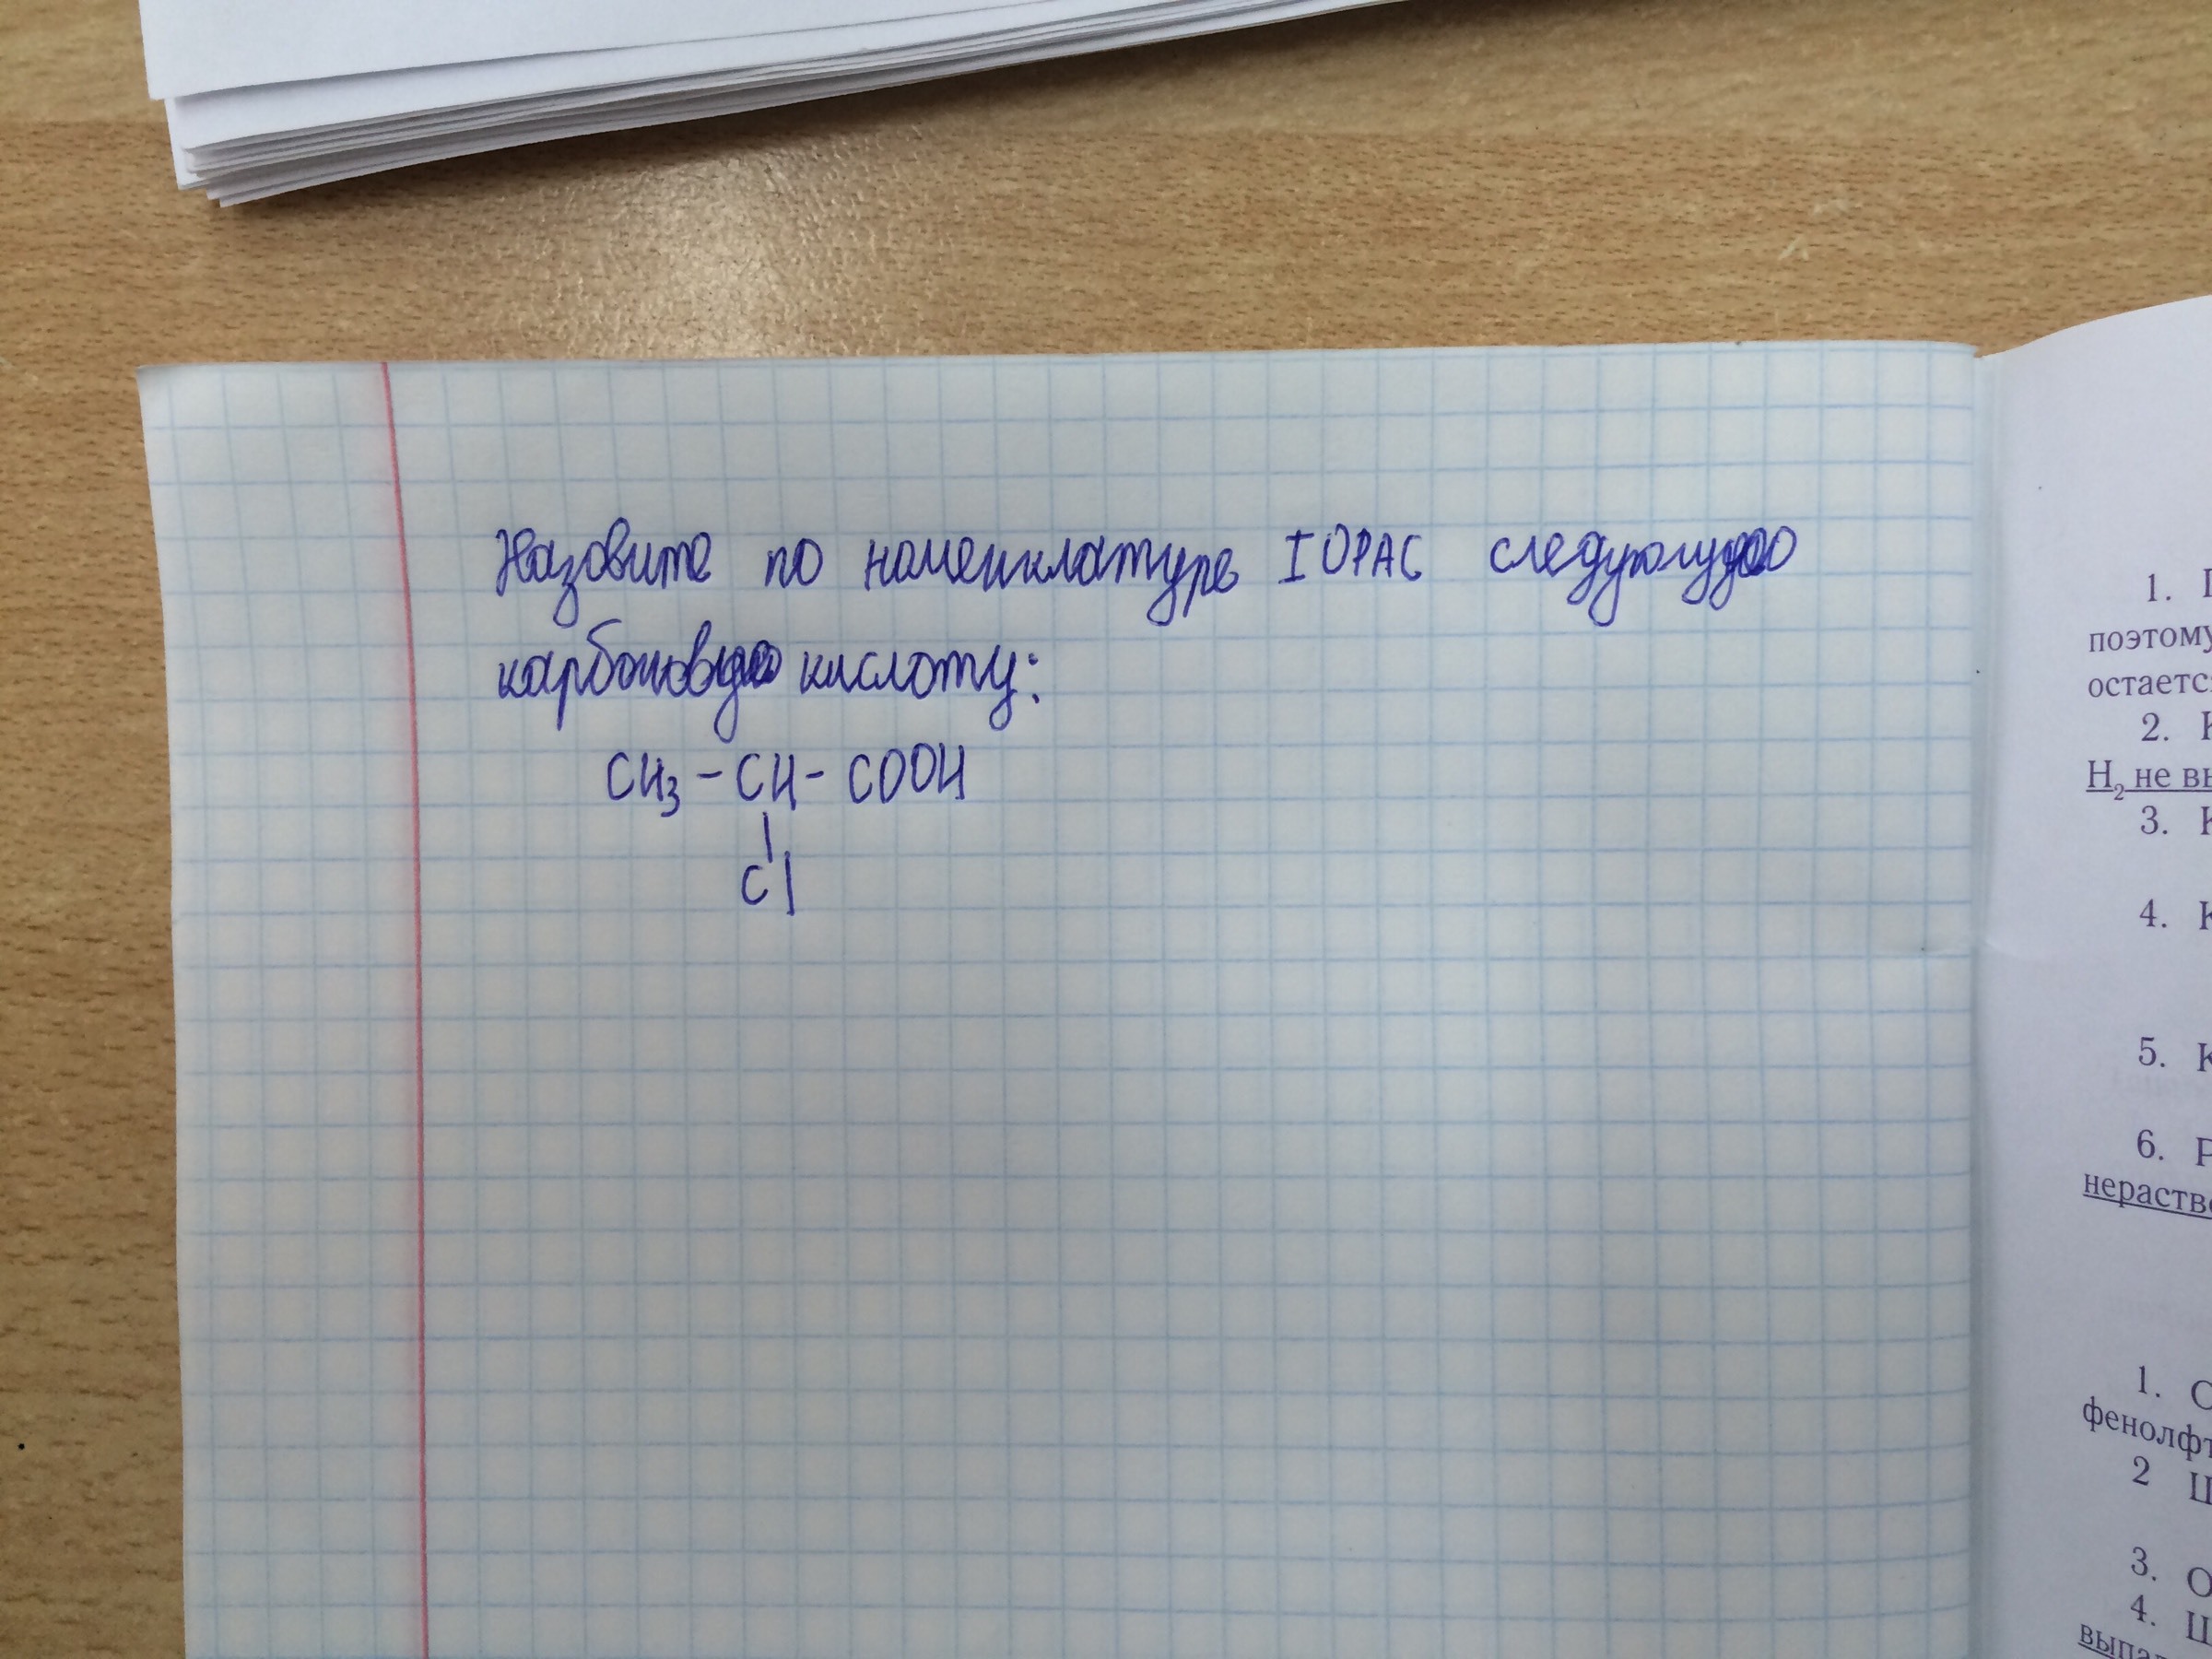 Назовите по номенклатуре IUPAC следующую
карбоновую кислоту:
CH₃ – CH – COOH
|
Cl
1.
поэтому
остаетс
2. К
H₂ не вы
3. К
4. К
5. К
6. Р
нераство
1. О
фенолфт
2 Ц
3. О
4. Ц
выпа